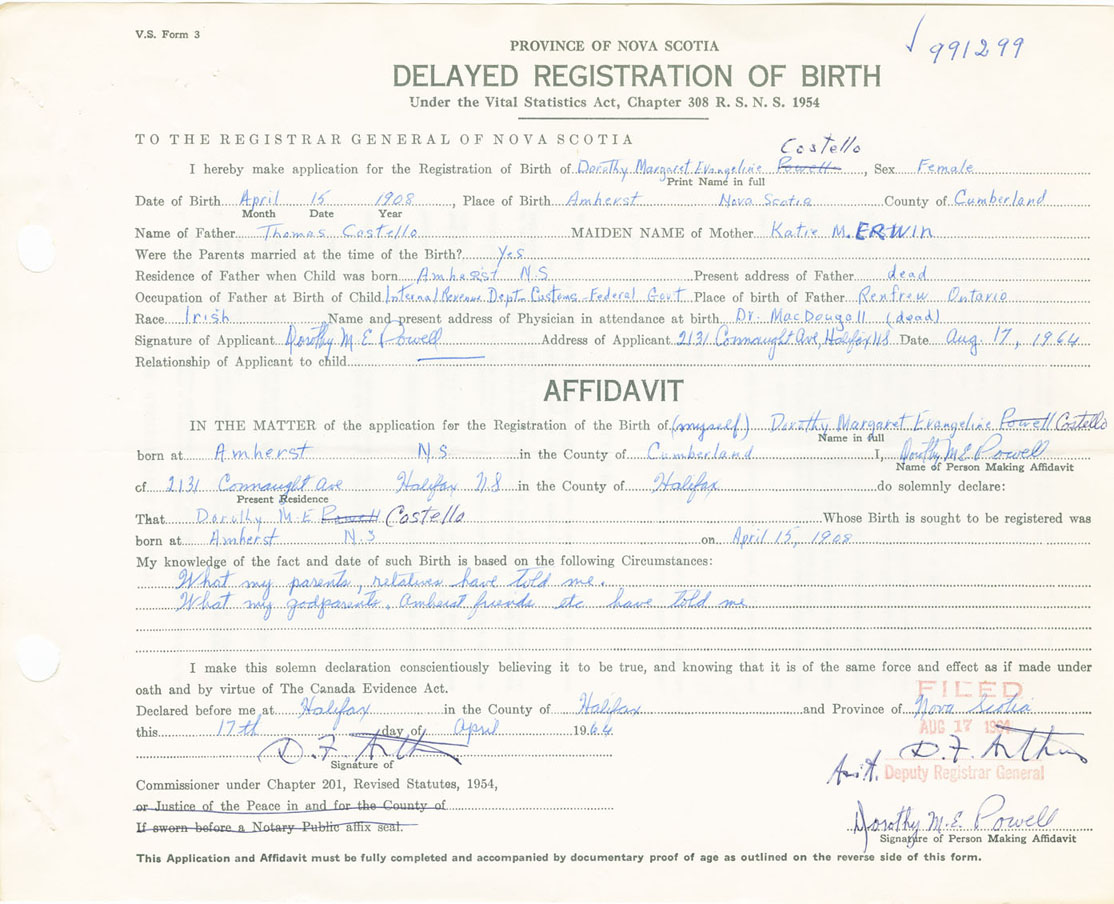 V.S. Form 3
991299
PROVINCE OF NOVA SCOTIA
DELAYED REGISTRATION OF BIRTH
Under the Vital Statistics Act, Chapter 308 R. S. N. S. 1954
TO THE REGISTRAR GENERAL OF NOVA SCOTIA
Costello
I hereby make application for the Registration of Birth of Dorothy Margaret Evangeline Powell, Sex Female
Print Name in full
Date of Birth April 15 1908, Place of Birth Amherst Nova Scotia County of Cumberland
Month Date Year
Name of Father Thomas Costello MAIDEN NAME of Mother Katie M. ERWIN
Were the Parents married at the time of the Birth? Yes
Residence of Father when Child was born Amherst N.S Present address of Father dead
Occupation of Father at Birth of Child Internal Revenue Dept- Customs- Federal Govt Place of birth of Father Renfrew Ontario
Race Irish Name and present address of Physician in attendance at birth Dr. MacDougall (dead)
Signature of Applicant Dorothy M E Powell Address of Applicant 2131 Connaught Ave, Halifax NS Date Aug. 17, 1964
Relationship of Applicant to child
AFFIDAVIT
IN THE MATTER of the application for the Registration of the Birth of (myself) Dorothy Margaret Evangeline Powell Costello
Name in full
born at Amherst N.S. in the County of Cumberland I, Dorothy M E Powell
Name of Person Making Affidavit
of 2131 Connaught Ave Halifax NS in the County of Halifax do solemnly declare:
Present Residence
That Dorothy M.E Powell Costello Whose Birth is sought to be registered was
born at Amherst N.S on April 15, 1908
My knowledge of the fact and date of such Birth is based on the following Circumstances:
What my parents, relatives have told me.
What my godparents, Amherst friends etc have told me
I make this solemn declaration conscientiously believing it to be true, and knowing that it is of the same force and effect as if made under
oath and by virtue of The Canada Evidence Act.
FILED
Declared before me at Halifax in the County of Halifax and Province of Nova Scotia
this 17th day of April 1964
AUG 17 1964
D. F. Arthur
D. F. Arthur
Signature of
Asst. Deputy Registrar General
Commissioner under Chapter 201, Revised Statutes, 1954,
or Justice of the Peace in and for the County of
Dorothy M.E. Powell
If sworn before a Notary Public affix seal.
Signature of Person Making Affidavit
This Application and Affidavit must be fully completed and accompanied by documentary proof of age as outlined on the reverse side of this form.